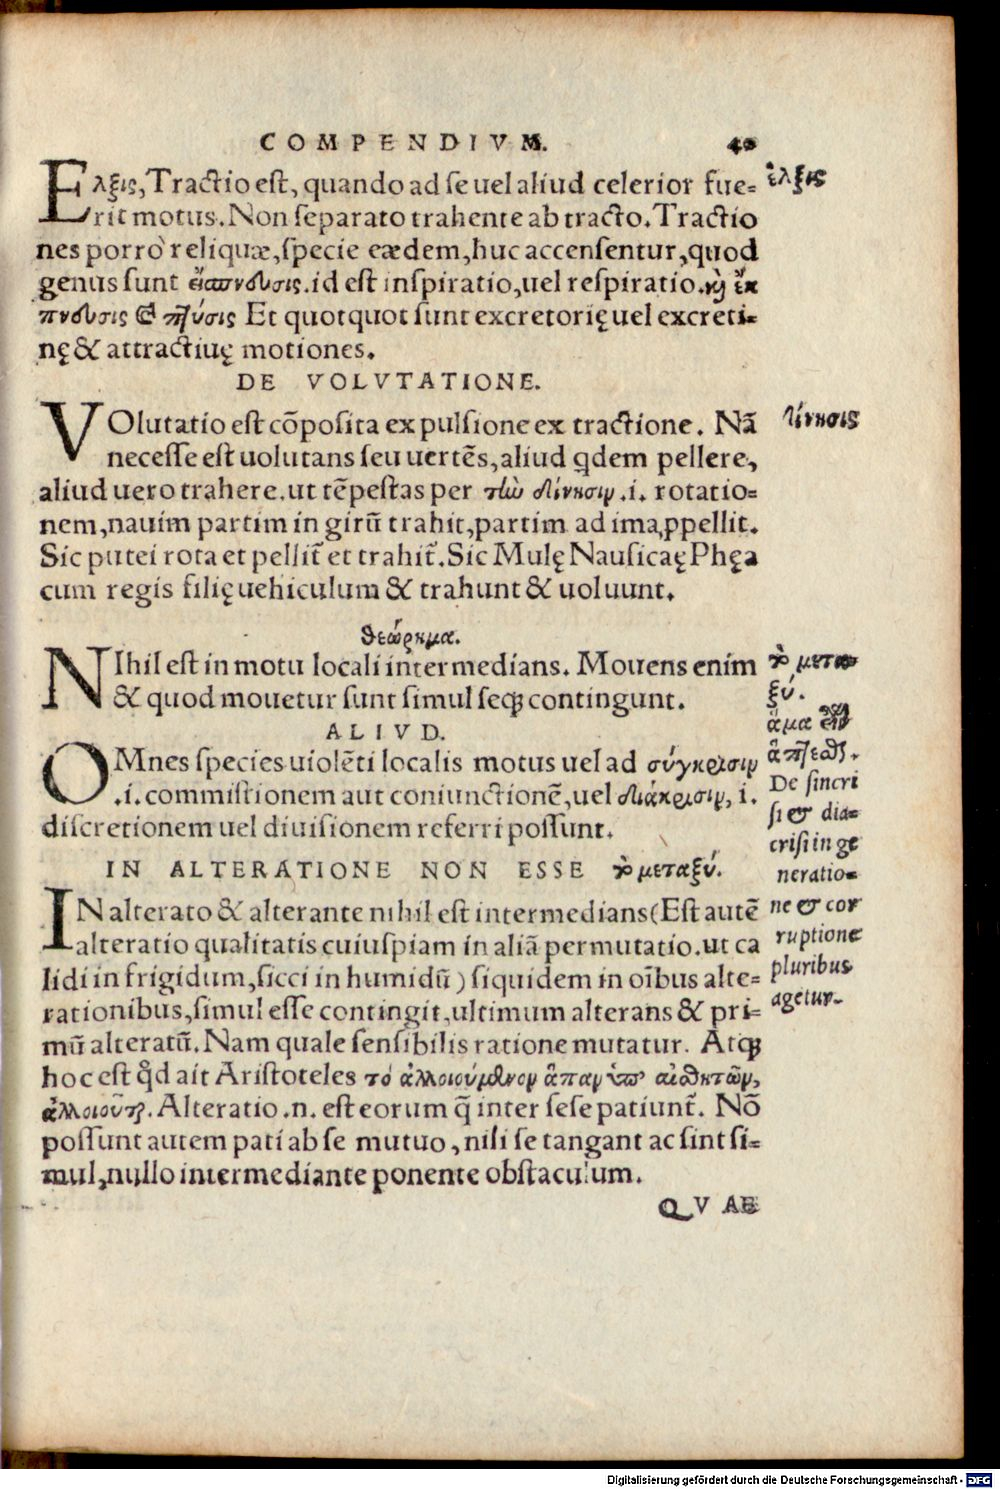 COMPENDIVM. 40
Eλξις, Tractio est, quando ad se uel aliud celerior fue=
rit motus. Non separato trahente ab tracto. Tractio
nes porrò reliquæ, specie eædem, huc accensentur, quod
genus sunt εἴσπνευσις. id est inspiratio, uel respiratio. καὶ ἔκ
πνευσις & πτύσις Et quotquot sunt excretorię uel excreti=
nę & attractiuę motiones.
ἕλξις
DE VOLVTATIONE.
VOlutatio est cõposita ex pulsione ex tractione. Nã
necesse est uolutans seu uertẽs, aliud qdem pellere,
aliud uero trahere. ut tẽpestas per τὴν δίνησιν .i. rotatio=
nem, nauim partim in girũ trahit, partim ad ima ꝓpellit.
Sic putei rota et pellit̃ et trahit̃. Sic Mulę Nausicaę Phęa
cum regis filię uehiculum & trahunt & uoluunt.
δίνησις
θεώρημα.
NIhil est in motu locali intermedians. Mouens enim
& quod mouetur sunt simul seqꝫ contingunt.
τὸ μετα
ξύ.
ἅμα
ἅπτεσθαι.
ALIVD.
OMnes species uiolẽti localis motus uel ad σύγκρισιν
.i. commistionem aut coniunctionẽ, uel διάκρισιν, i.
discretionem uel diuisionem referri possunt.
De sincri
si & dia=
crisi in ge
neratio=
ne & cor
ruptione
pluribus
agetur.
IN ALTERATIONE NON ESSE τὸ μεταξύ.
IN alterato & alterante nihil est intermedians (Est autẽ
alteratio qualitatis cuiuspiam in aliã permutatio. ut ca
lidi in frigidum, sicci in humidũ) siquidem in oĩbus alte=
rationibus, simul esse contingit, ultimum alterans & pri=
mũ alteratũ. Nam quale sensibilis ratione mutatur. Atqꝫ
hoc est qd̃ ait Aristoteles τὸ ἀλλοιούμενον ἅπαν ὑπ' αἰσθητῶν,
ἀλλοιοῦται. Alteratio .n. est eorum q̃ inter sese patiunt̃. Nõ
possunt autem pati ab se mutuo, nisi se tangant ac sint si=
mul, nullo intermediante ponente obstaculum.
QVAE
Digitalisierung gefördert durch die Deutsche Forschungsgemeinschaft - DFG